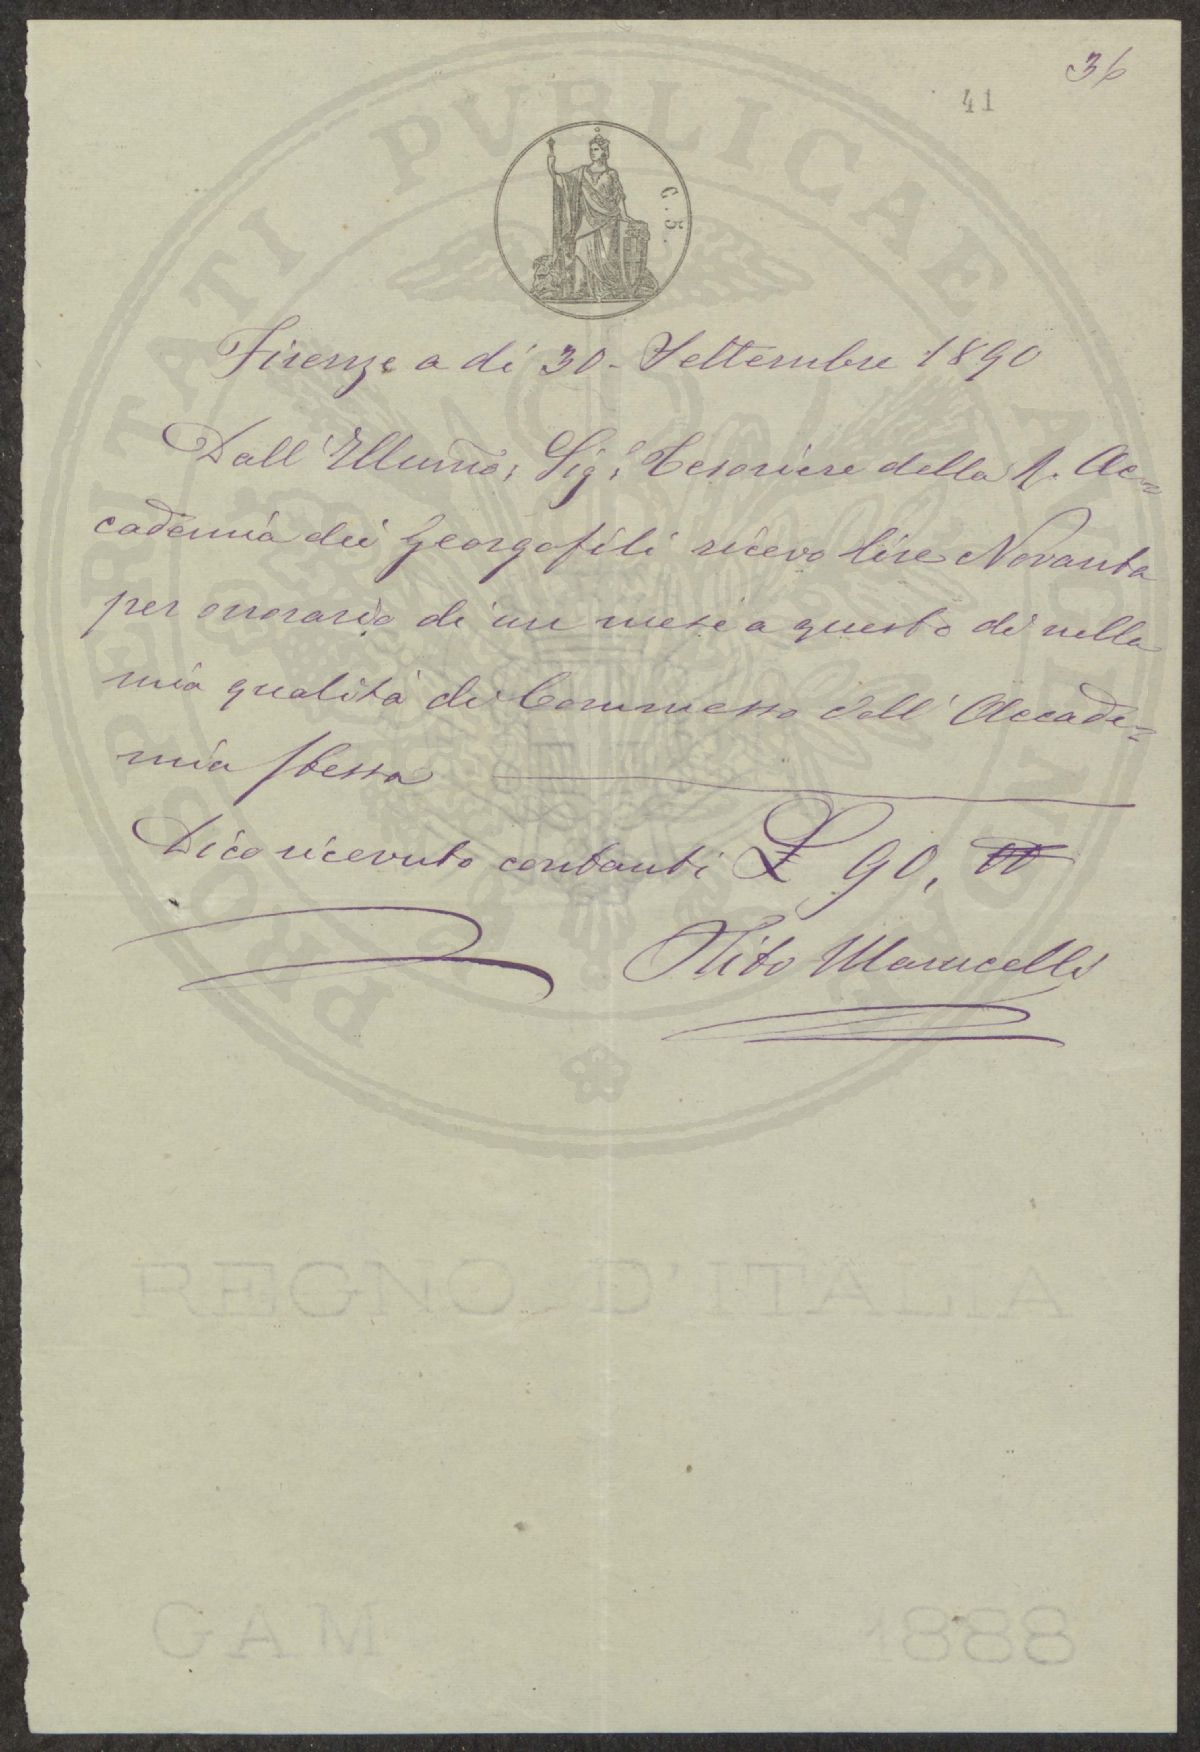 36
41
G. 5.
PROSPERITATI PVBLICAE AVGENDAE
Firenze a dì 30 - Settembre 1890
Dall' Illumo, Sigr, Tesoriere della R. Ac=
cademia dei Georgofili ricevo lire Novanta
per onorario di un mese a questo dì nella
mia qualità di Commesso dell' Accade=
mia stessa
Dico ricevuto contanti £ 90, 00
Tito Marucelli
REGNO D'ITALIA
GAM 1888